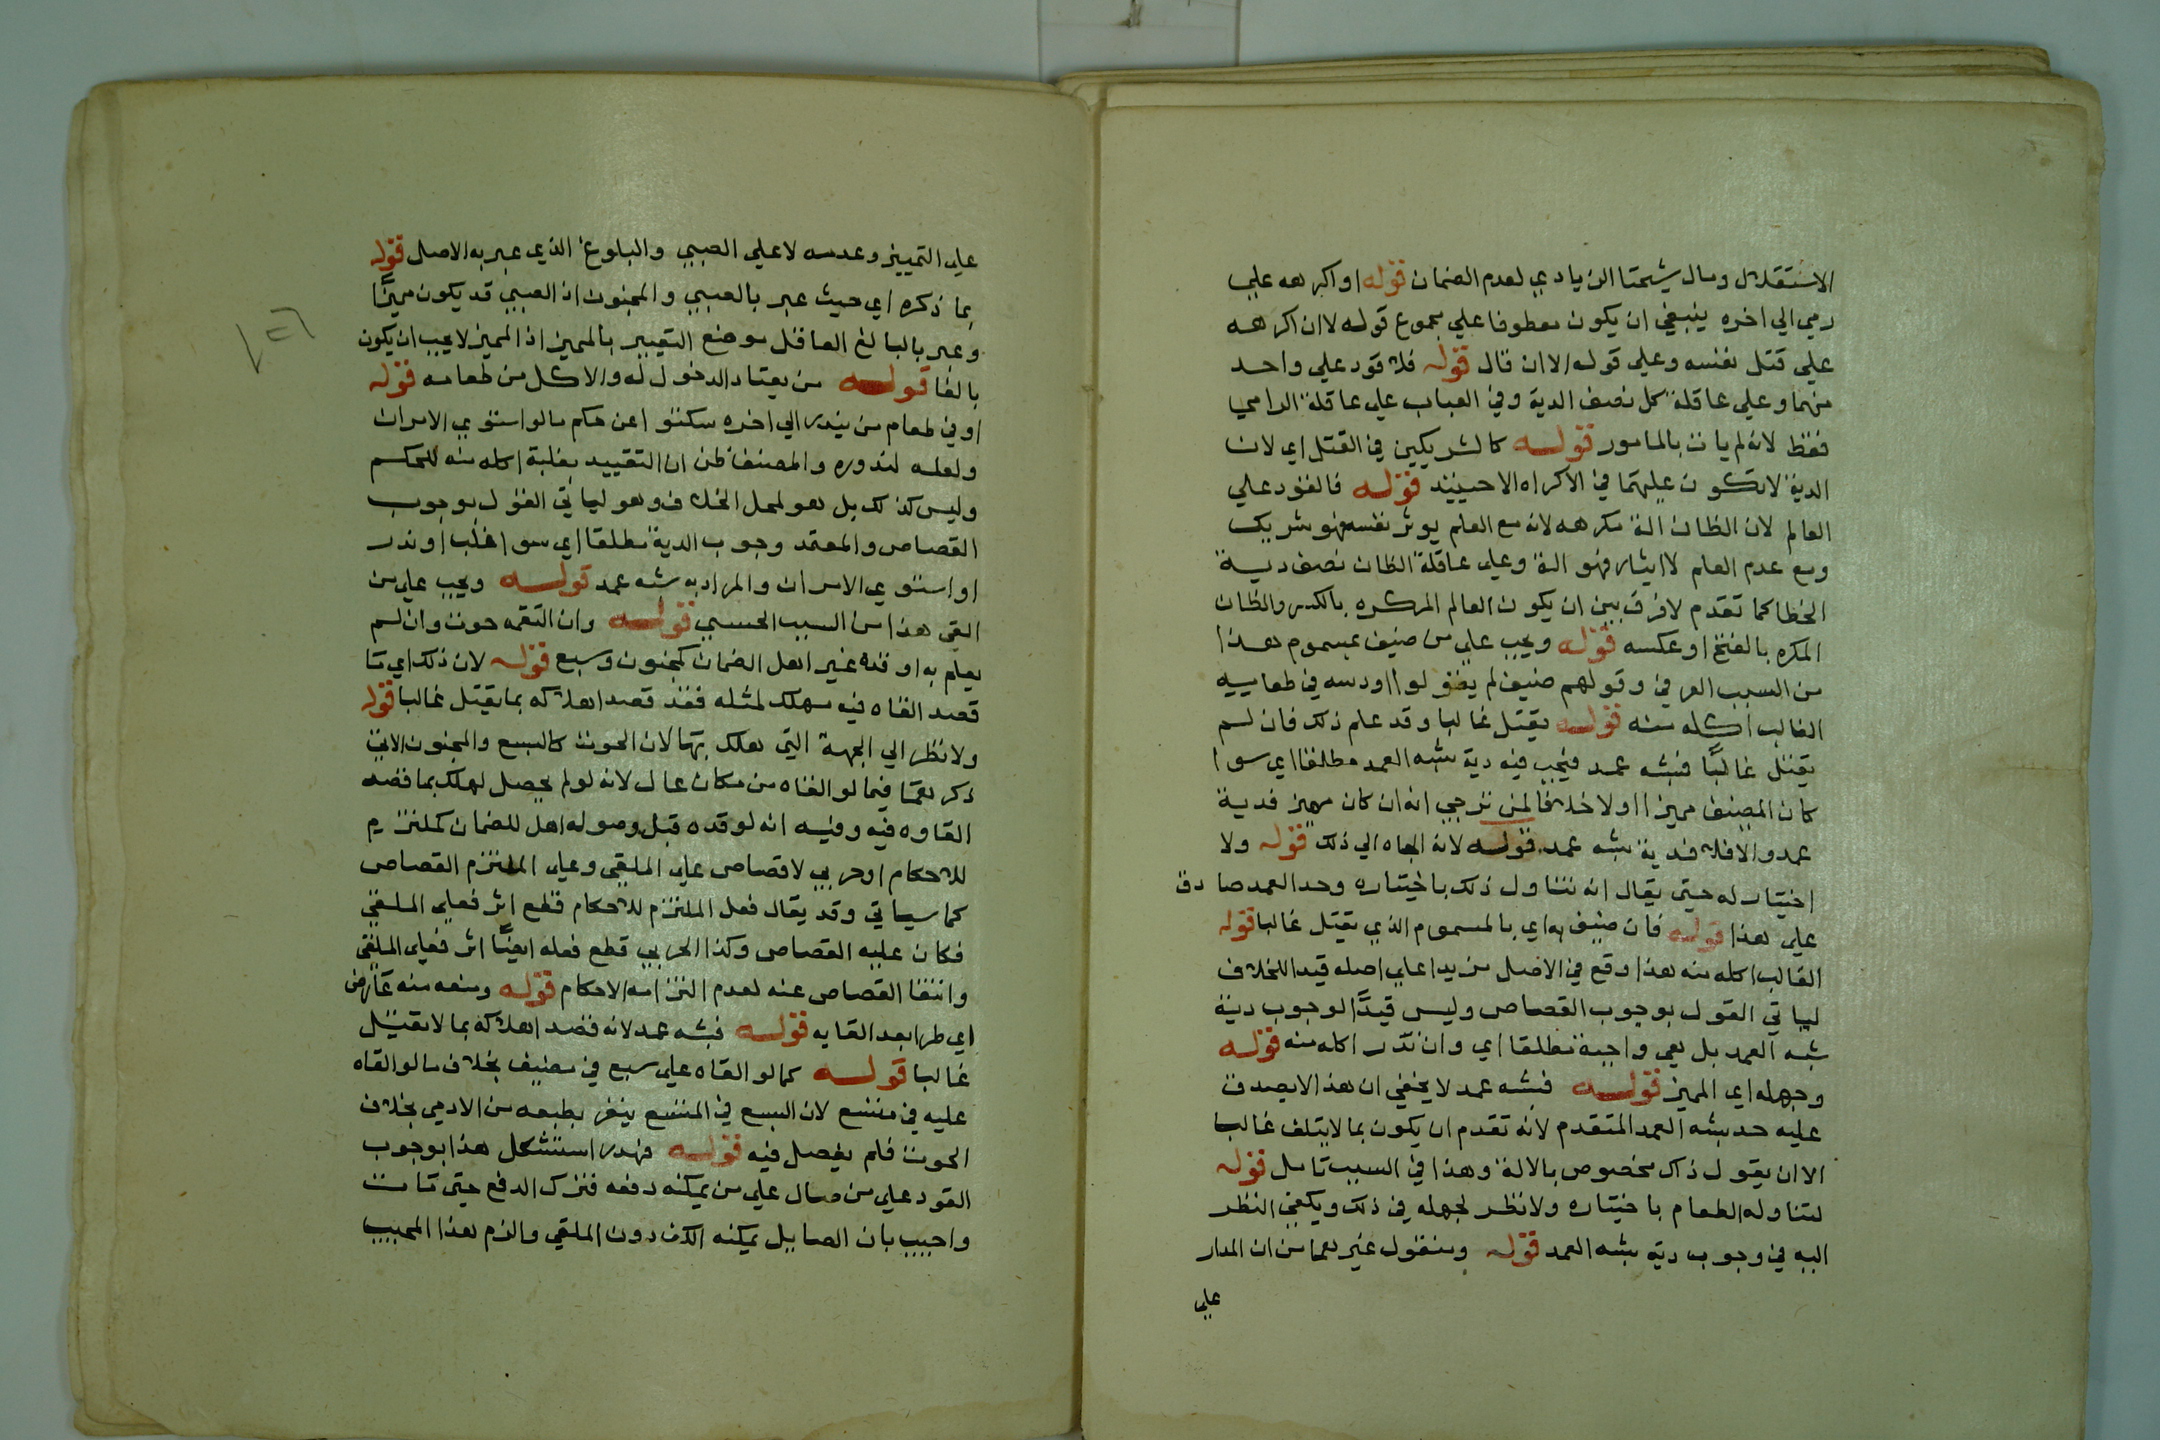 الاستقلال ومال شيخنا الزيادي لعدم الضمان قوله او اكرهه علي
رمي الي اخره ينبغي ان يكون معطوفا علي مجموع قوله لا ان اكرهه
علي قتل نفسه وعلي قوله الا ان قال قوله فلا قود علي واحد
منهما وعلي عاقلة كل نصف الدية وفي العباب علي عاقلة الرامي
فقط لانه لم يات بالمامور قوله كالشريكين في القتل اي لان
الدية لا تكون عليهما في الاكراه الا حينيذ قوله فالقود علي
العالم لان الظان الة مكرهه لانه مع العلم يوثر نفسه فهو شريك
ومع عدم العلم لا ايثار فهو الة وعلي عاقلة الظان نصف دية
الخطا كما تقدم لا فرق بين ان يكون العالم المكره بالكسر والظان
المكره بالفتح او عكسه قوله ويجب علي من ضيف بمسموم هذا
من السبب العرفي وقولهم ضيف لم يقولوا اودسه في طعاميه
الغالب اكله منه قوله يقتل غالبا وقد علم ذلك فان لم
يقتل غالبًا فشبه عمد فيجب فيه دية شبه العمد مطلقا اي سوا
كان المضيف مميزا اولا خلافا لمن ترجي انه ان كان مميز فدية
عمد والا فلا فدية شبه عمد قوله لانه الجاه الي ذلك قوله ولا
اختيار له حتي يقال انه تناول ذلك باختياره وحد العمد صادق
علي هذا قوله فان ضيف به اي بالمسموم الذي يقتل غالبا قوله
الغالب اكله منه هذا وقع في الاصل مزيدا علي اصله قيدا للخلاف
لياتي القول بوجوب القصاص وليس قيدًا لوجوب دية
شبه العمد بل هي واجبة مطلقا اي وان ندر اكله منه قوله
وجهله اي المميز قوله فشبه عمد لا يخفي ان هذا لا يصدق
عليه حد شبه العمد المتقدم لانه تقدم ان يكون بما لا يتلف غالبا
الا ان يقول ذاك مخصوص بالالة وهذا في السبب تامل قوله
لتناوله الطعام باختياره ولا نظر لجهله في ذلك ويكفي النظر
اليه في وجوب دية شبه العمد قوله ومنقول غيرهما من ان المدار
علي
علي التمييز وعدمه لا علي الصبي والبلوغ الذي عبر به الاصل قوله
بما ذكره اي حيث عبر بالصبي والمجنون اذ الصبي قد يكون مميزًا
وعبر بالبالغ العاقل موضع التعبير بالمميز اذ المميز لا يجب ان يكون
بالغا قوله من يعتاد الدخول له والاكل من طعامه قوله
او في طعام من يندر الي اخره سكتوا عن حكم ما لو استوي الامران
ولعله لندوره والمصنف ظن ان التقييد بغلبة اكله منه للحكم
وليس كذلك بل هو لمحل الخلاف وهو لياتي القول بوجوب
القصاص والمعتمد وجوب الدية مطلقا اي سوا غلب او ندر
او استوي الامران والمراد به شبه عمد قوله ويجب علي من
القي هذا من السبب الحسي قوله وان التقمه حوت وان لم
يعلم به او قده غير اهل الضمان كمجنون وسبع قوله لان ذلك اي ما
قصد القاه فيه مهلك لمثله فقد قصد اهلاكه بما يقتل غالبا قوله
ولا نظر الي الجهة التي هلك بها لان الحوت كالسبع والمجنون الاتي
ذكرهما فيما لو القاه من مكان عال لانه لو لم يحصل لهلك بما قصد
القاوه فيه وفيه انه لو قده قبل وصوله اهل للضمان كملتزم
للاحكام او حربي لا قصاص علي الملقي وعلي الملتزم القصاص
كما سياتي وقد يقال فعل الملتزم للاحكام قطع اثر فعل الملقي
فكان عليه القصاص وكذا الحربي قطع فعله ايضًا اثر فعل الملقي
وانتفا القصاص عنه لعدم التزامه الاحكام قوله ومنعه منه عارض
اي طرا بعد القايه قوله فشبه عمد لانه قصد اهلاكه بما لا يقتل
غالبا قوله كما لو القاه علي سبع في مضيف بخلاف ما لو القاه
عليه في متسع لان السبع في المتسع ينفر بطبعه من الادمي بخلاف
الحوت فلم يفصل فيه قوله فهدر استشكل هذا بوجوب
القود علي من صال علي من يمكنه دفعه فترك الدفع حتي مات
واجيب بان الصايل يمكنه الكف دون الملقي والزم هذا المجيب